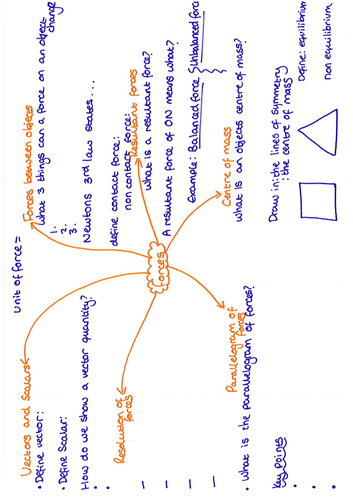 Unit of force =
Vectors and Scalars
• Define vector:
• Define Scalar:
How do we show a vector quantity?
Resolution of
forces
Forces between objects
what 3 things can a force on an object
change?
1.
2.
3.
Newtons 3rd law states....
define contact force:
non contact force:
Resultant forces
what is a resultant force?
A resultant force of 0N means what?
Example: Balanced force
Unbalanced force
forces
Centre of mass
what is an objects centre of mass?
Draw in: the lines of symmetry
: the centre of mass
Define: equilibrium
non equilibrium
Parallelogram of
forces
• What is the parallelogram of forces?
Key Points